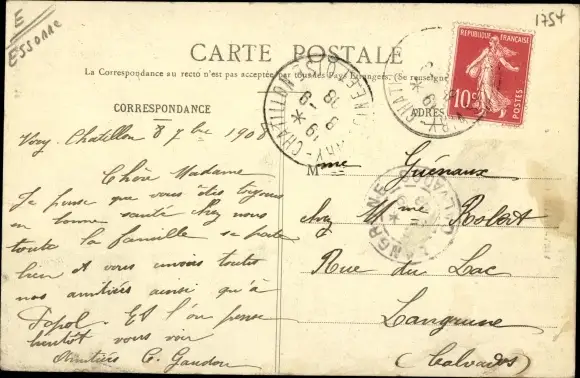 E
ESSONNE
1754
CARTE POSTALE
La Correspondance au recto n'est pas acceptée par tous les Pays Étrangers. (Se renseigner
REPUBLIQUE FRANÇAISE
10c
POSTES
CORRESPONDANCE
ADRES
Viry-Chatillon 8 7bre 1908
Chère Madame
Je pense que vous êtes toujours
en bonne santé chez nous
toute la famille se porte
bien et vous envoie toutes
nos amitiés ainsi qu'à
Popol. Et l'on pense
bientôt vous voir
Amitiés C. Gaudon
Mme Guénaux
chez Mme Robert
Rue du Lac
Langrune
(Calvados)
CHATILLON
8 -9
08
LANGRUNE